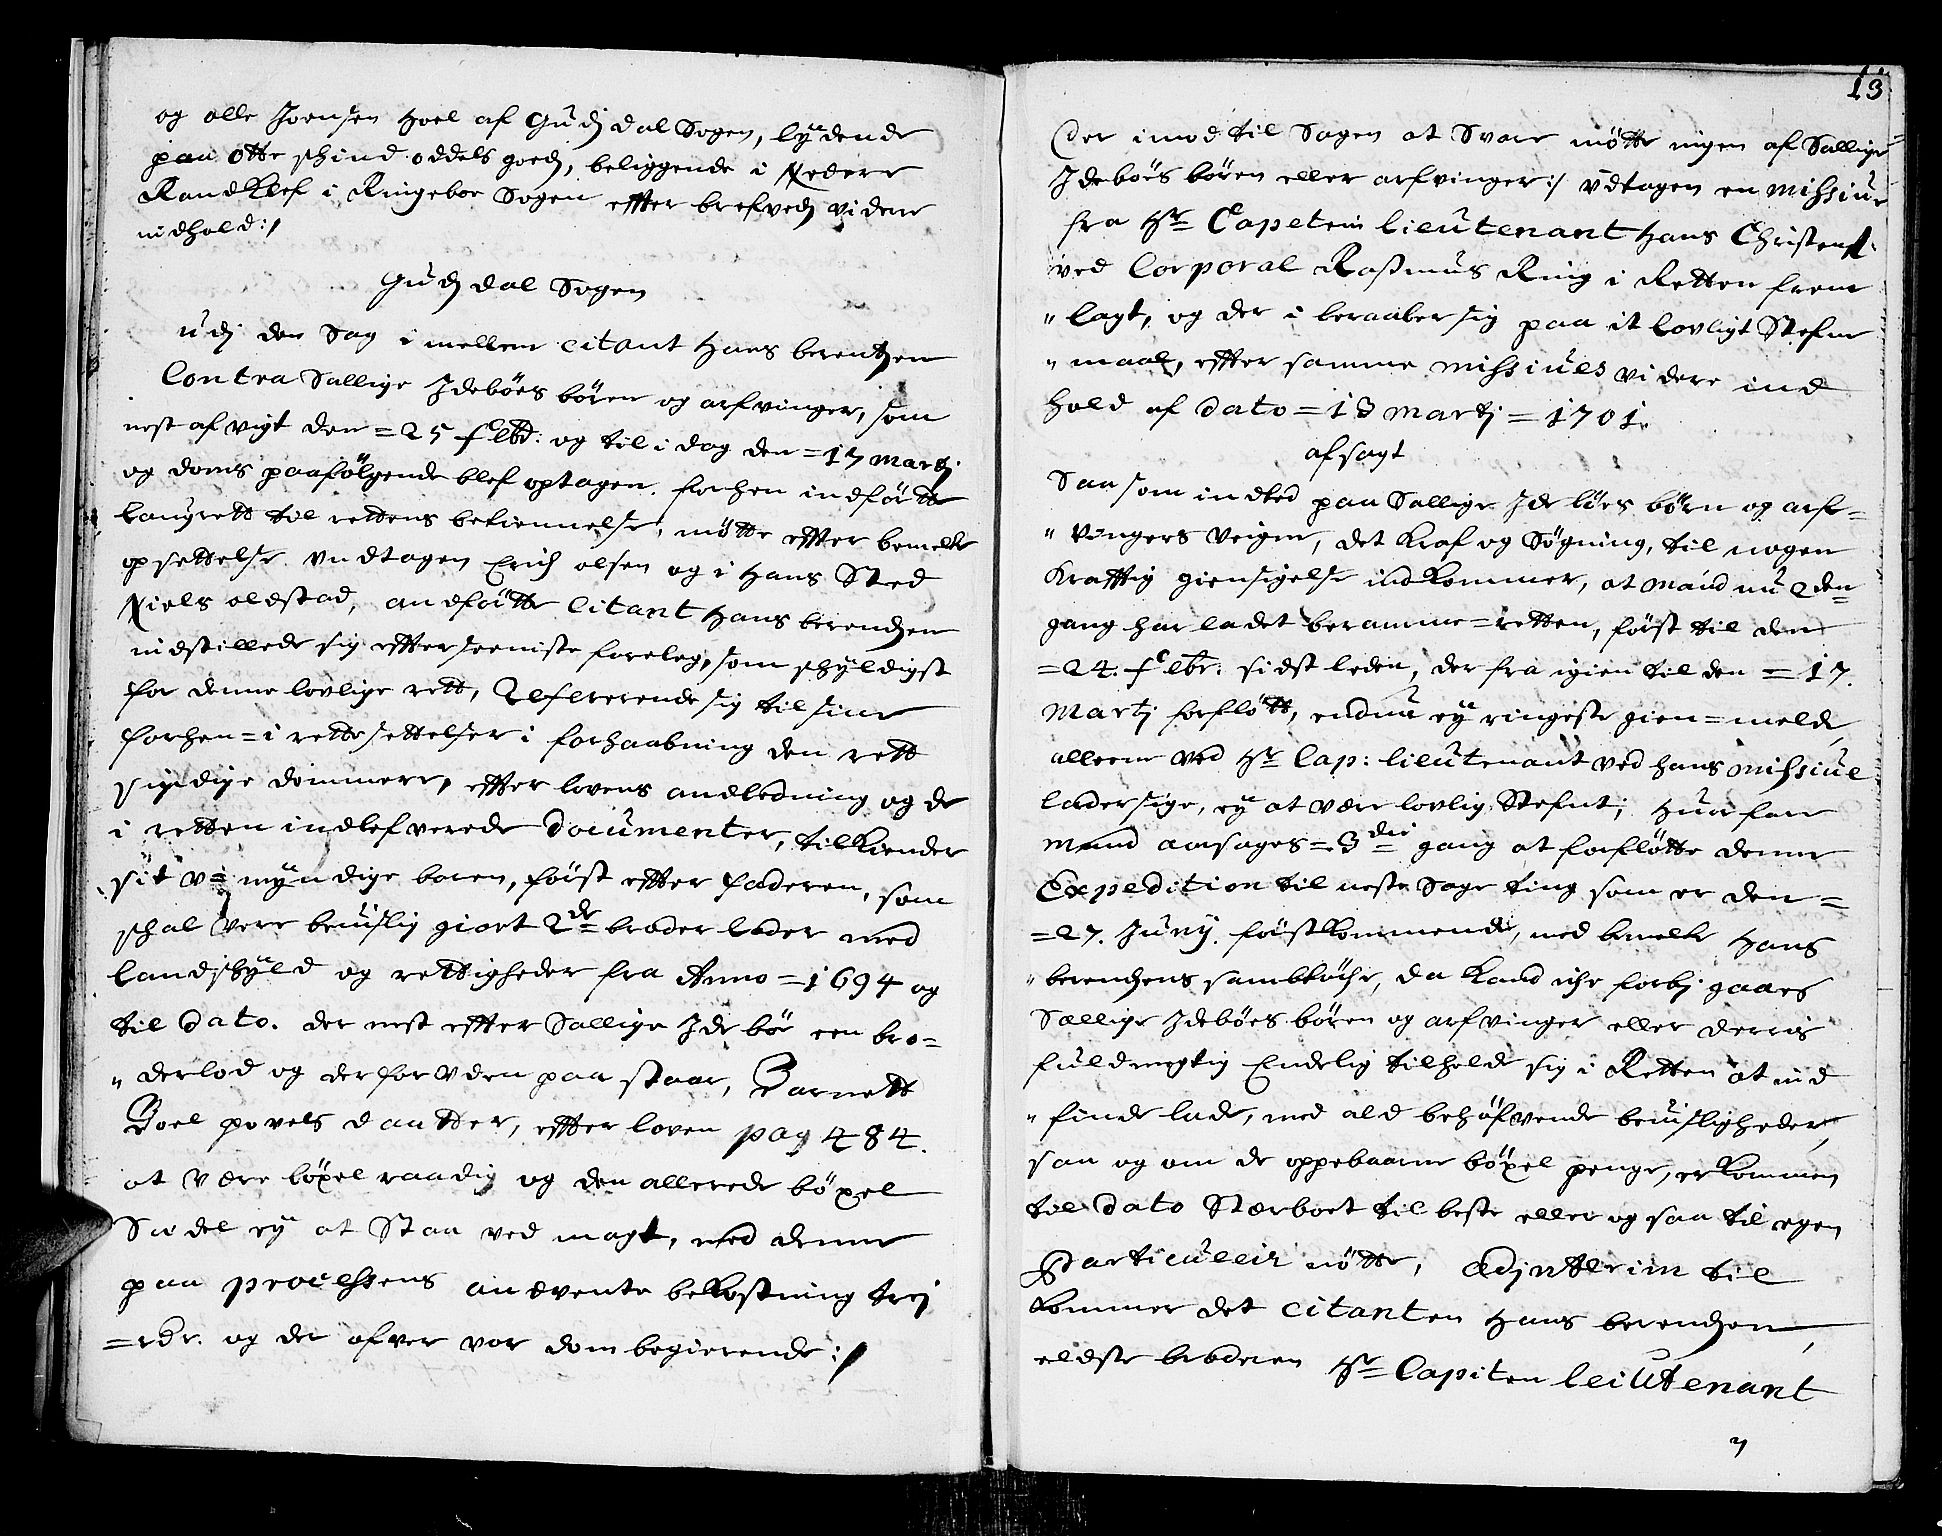 og olle Joensen Hoel af Gudz dal Sogen, lÿdende
paa otte schind oddels goedz, beliggende i Nedere
RandKlef i Ringeboe Sogen effter brefvedz videre
indhold:/
Gudz dal Sogen
udj den Sag i mellem citant Hans berentzen
Contra Sallige Ideböes bören og arfvinger, som
nest afvigt den = 25 febr: og til i dag den = 17 martj
og doms paafölgende blef optagen. forhen indförtte
laugrett til rettens betiennelse, mötte effter bemelte
opsettelse undtagen Erich olsen og i Hans Sted
Niels oldstad, andförtte Citant Hans berendzen
indstillede sig effter seeniste foreleg, som schÿldigst
for denne lovlige rett, Refererende sig til sine
forhen = i rettesettelser i forhaabning den rett
sindige dommere, effter lovens andledning og de
i retten indlefverede documenter, tilkiender
sit V= mÿndige baren, först effter faderen, som
schal vere beuislig giort 2de broder loder med
landschÿld og rettigheder fra Anno = 1694 og
til dato. der nest effter Sallige Ide bör een bro=
" derlod og der for uden paa staar, Barnett
Boel povels daatter, effter loven pag 484.
at være böxel raadig og den allerede böxel
Sedel eÿ at Staa ved magt, med denne
paa processens anvente bekostning trej
= rdr. og der ofver vor dom begierende :/
13
Der imod til Sagen at Svare mötte ingen af Sallige
Idebös bören eller arfvinger:/ udtagen en missiue
fra Hr Capetein lieutenant Hans Christens.
ved Corporal Rasmus Ring i Retten frem
" lagt, og der i beraaber sig paa it lovligt Stefne
" maal, effter samme missiues videre ind
hold af dato = 13 martj = 1701.
afsagt
Saa som indted paa Sallige Ide böes börn og arf=
" vingers veigne, det Kraf og Sögning, til nogen
Krafftig giensigelse indkommer, at mand nu 2den
gang har ladet beramme = retten, först til den
= 24. febr: sidst leden, der fra igien til den = 17.
Martj forflött, endnu eÿ ringeste gien = melde,
alleene ved Hr Cap: lieutenant ved hans missiue
lader sige, eÿ at være lovlig Stefnt; huor for
mand aarsages = 3die gang at forflötte denne
Expedition til neste Sage ting som er den =
= 27. Junÿ. förstkommende, med bemelte Hans
" berendzens samtöche, da Kand iche forbj gaaes
Sallige Idebös bören og arfvinger eller derris
fuldmegtig Endelig tilholde sig i Retten at ind
" finde lade, med ald behöfvende beuisligheder,
saa og om de oppebaarne böxel penge, er kommen
til dato Stærboet til beste eller og saa til egen
Particuleir nötte, Adjnterim til
kommer det citanten Hans berendzen,
eldste broderen Hr Capiten leiutenant